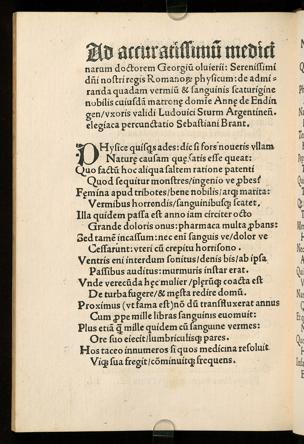 Ad accuratissimũ medici
narum doctorem Georgiũ oluierii: Serenissimi
dñi nostri regis Romanoꝝ physicum: de admi-
randa quadam vermiũ & sanguinis scaturigine
nobilis cuiusdã matronę domię Annę de Endin
gen/vxoris validi Ludouici Sturm Argentineñ.
elegiaca percunctatio Sebastiani Brant.
PHysice quisq̃s ades: dic si fors noueris vllam
Naturę causam quę satis esse queat:
Quo factũ hoc aliqua saltem ratione patenti
Quod sequitur monstres/ingenio ve probes
Femina apud tribotes/bene nobilis/atq; marita:
Vermibus horrendis/sanguinibusq; scatet.
Illa quidem passa est anno iam circiter octo
Grande doloris onus: pharmaca multa probans:
Sed tamẽ incassum: nec eni sanguis ve/dolor ve
Cessarunt: vteri cũ crepitu horrisono.
Ventris eni interdum sonitus/denis bis/ab ipsa
Passibus auditus: murmuris instar erat.
Vnde verecũda hęc mulier/plerũq; coacta est
De turba fugere/& męsta redire domũ.
Proximus (vt fama est) nõ dũ transfluxerat annus
Cum ꝓpe mille libras sanguinis euomuit:
Plus etiã q̃ mille quidem cũ sanguine vermes:
Ore suo eiecit/lumbriculisq; pares.
Hos taceo innumeros si quos medicina resoluit
Viq; sua fregit/cõminuitq; frequens.